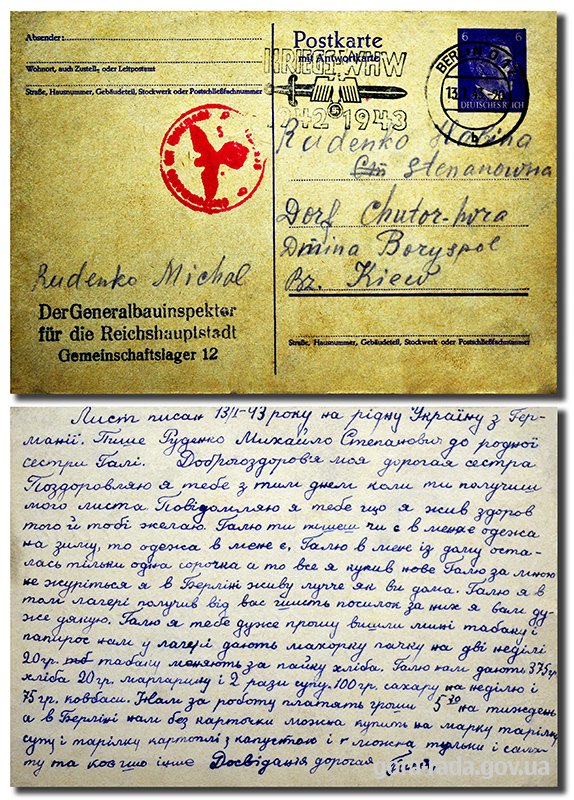 Absender:
Wohnort, auch Zustell- oder Leitpostamt
Straße, Hausnummer, Gebäudeteil, Stockwerk oder Postschließfachnummer
Postkarte
mit Antwortkarte
KRIEGS-WHW
42 1943
BERLIN
6 6
DEUTSCHES REICH
Rudenko Halina
Stepanowna
Dorf Chutor-hora
Boryspol
Bz. Kiew
Rudenko Michal
Der Generalbauinspektor
für die Reichshauptstadt
Gemeinschaftslager 12
Straße, Hausnummer, Gebäudeteil, Stockwerk oder Postschließfachnummer
Лист писан 13/I-43 року на рідну Україну з Гер-
манії. Пише Руденко Михайло Степанович до родної
сестри Галі. Доброго здоров'я моя дорогая сестра
Поздоровляю я тебе з тим днем коли ти получиш
мого листа Повідомляю я тебе що я жив здоров
того й тобі желаю. Галю ти пишеш чи є в мене одежа
на зиму, то одежа в мене є, Галю в мене із дому оста-
лась тільки одна сорочка а то все я купив нове Галю за мною
не журіться я в Берліні живу лучче як ви дома. Галю я в
толі лагері получив від вас шість посилок за них я вам ду-
же дякую. Галю я тебе дуже прошу вишли мині табаку і
папирос нам у лагері дають махорки пачку на дві неділі
20гр. табаку меняють за пайку хліба. Галю нам дають 375гр
хліба 20гр. маргарину і 2 рази супу. 100гр. сахару на неділю і
75гр. ковбаси. Нам за роботу платять гроши 5 30 на тиждень
а в Берліні нам без карточки можна купить на марку тарілку
супу і тарілку картоплі з капустою і можна тульки і сала-
ту та ков що інше Досвідання дорогая Галя.
gorrada.gov.ua